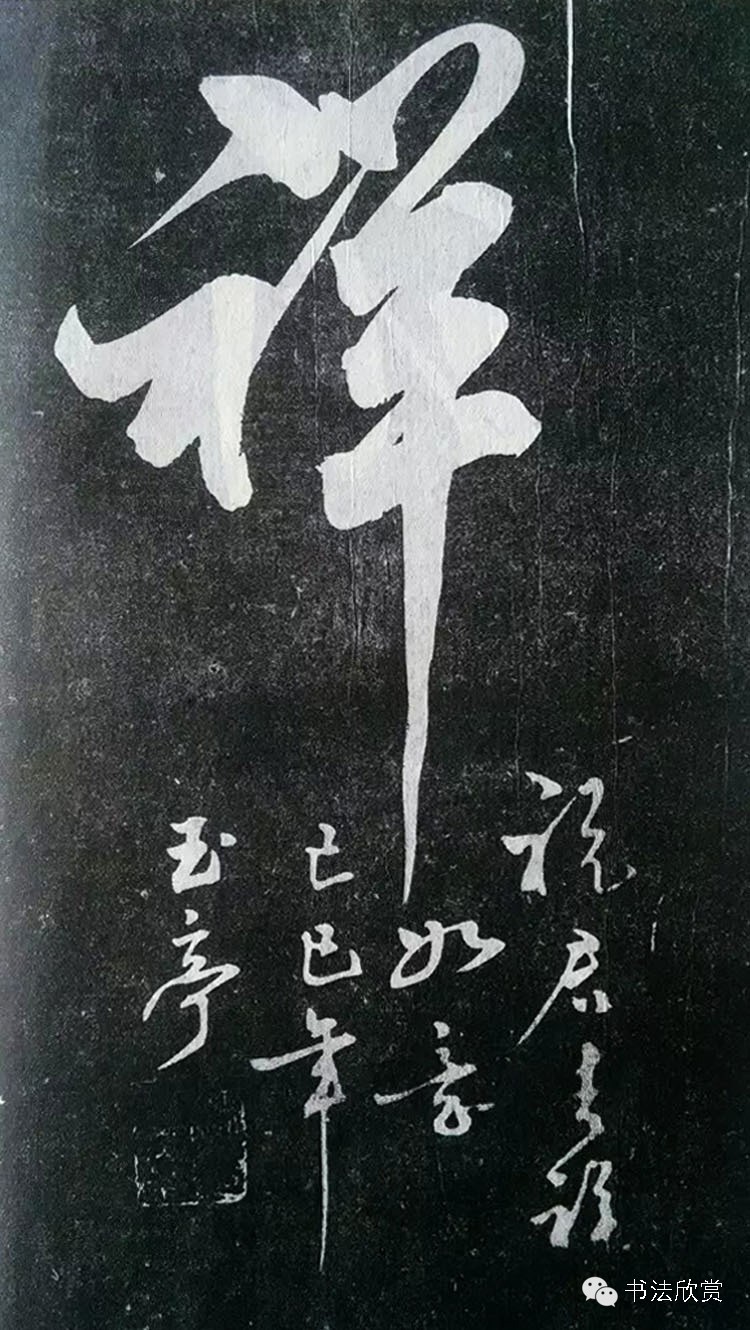 祥
祝君吉祥
如意
己巳年
玉亭
书法欣赏